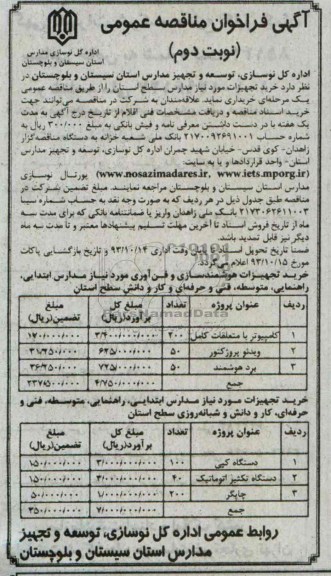 آگهی فراخوان مناقصه عمومی
(نوبت دوم)
اداره کل نوسازی مدارس
استان سیستان و بلوچستان
اداره کل نوسازی، توسعه و تجهیز مدارس استان سیستان و بلوچستان در
نظر دارد خرید تجهیزات مورد نیاز مدارس سطح استان را از طریق مناقصه عمومی
یک مرحله‌ای خریداری نماید. علاقه‌مندان به شرکت در مناقصه می‌توانند جهت
خرید اسناد مناقصه و دریافت مشخصات فنی اقلام از تاریخ درج آگهی به مدت
یک هفته با در دست داشتن معرفی نامه و فیش بانکی به مبلغ ۳۰۰/۰۰۰ ریال به
شماره حساب ۲۱۷۰۰۹۲۶۹۱۰۰۱ بانک ملی شعبه خزانه به دستگاه مناقصه‌گزار
زاهدان- کوی قدس- خیابان شهید چمران اداره کل نوسازی، توسعه و تجهیز مدارس
استان- واحد قراردادها و یا به سایت:
(www.nosazimadares.ir, www.iets.mporg.ir) پورتال نوسازی
مدارس استان سیستان و بلوچستان مراجعه نمایند. مبلغ تضمین شرکت در
مناقصه طبق جدول ذیل در هر ردیف که به صورت وجه نقد به حساب شماره سیبا
۲۱۷۳۰۶۲۶۱۱۰۰۳ بانک ملی زاهدان واریز یا ضمانتنامه بانکی که برای مدت سه
ماه از تاریخ فروش اسناد تا آخرین مهلت تسلیم پیشنهادها معتبر و تا مدت سه ماه
دیگر نیز قابل تمدید باشد.
ضمناً تاریخ تحویل اسناد تا پایان وقت اداری ۹۳/۱۰/۱۴ و تاریخ بازگشایی پاکات
مورخ ۹۳/۱۰/۱۵ اعلام می‌گردد.
خرید تجهیزات هوشمندسازی و فن‌آوری مورد نیاز مدارس ابتدایی،
راهنمایی، متوسطه، فنی و حرفه‌ای و کار و دانش سطح استان
ردیف عنوان پروژه تعداد مبلغ کل برآورد(ریال) مبلغ تضمین(ریال)
۱ کامپیوتر با متعلقات کامل ۲۰۰ ۳/۴۰۰/۰۰۰/۰۰۰ ۱۷۰/۰۰۰/۰۰۰
۲ ویدئو پروژکتور ۵۰ ۶۲۵/۰۰۰/۰۰۰ ۳۱/۲۵۰/۰۰۰
۳ برد هوشمند ۵۰ ۷۲۵/۰۰۰/۰۰۰ ۳۶/۲۵۰/۰۰۰
جمع ۴/۷۵۰/۰۰۰/۰۰۰ ۲۳۷/۵۰۰/۰۰۰
خرید تجهیزات مورد نیاز مدارس ابتدایی، راهنمایی، متوسطه، فنی و
حرفه‌ای، کار و دانش و شبانه‌روزی سطح استان
ردیف عنوان پروژه تعداد مبلغ کل برآورد(ریال) مبلغ تضمین(ریال)
۱ دستگاه کپی ۱۰۰ ۳/۰۰۰/۰۰۰/۰۰۰ ۱۵۰/۰۰۰/۰۰۰
۲ دستگاه تکثیر اتوماتیک ۴۰ ۳/۰۰۰/۰۰۰/۰۰۰ ۱۵۰/۰۰۰/۰۰۰
۳ چاپگر ۲۰۰ ۱/۰۰۰/۰۰۰/۰۰۰ ۵۰/۰۰۰/۰۰۰
جمع ۷/۰۰۰/۰۰۰/۰۰۰ ۳۵۰/۰۰۰/۰۰۰
روابط عمومی اداره کل نوسازی، توسعه و تجهیز
مدارس استان سیستان و بلوچستان